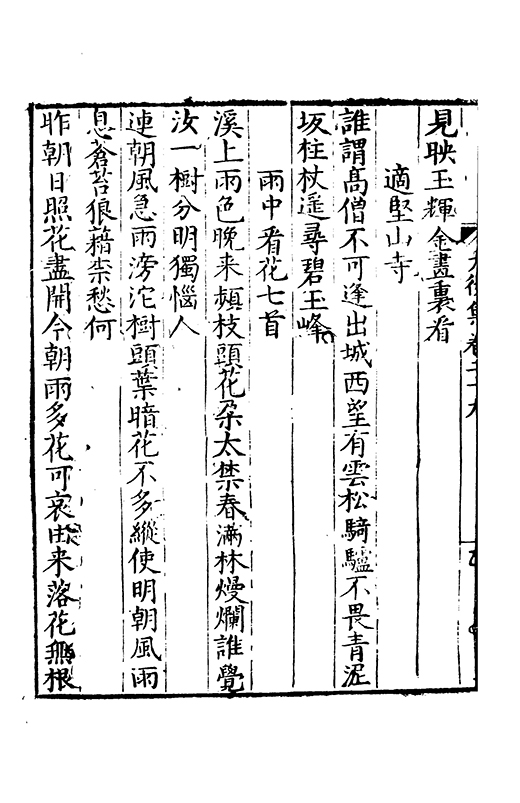 見映玉輝金畫裏看
適堅山寺
誰謂高僧不可逢出城西望有雲松騎驢不畏青泥
坂柱杖遥尋碧玉峰
雨中看花七首
溪上雨色晚来頻枝頭花朶太禁春滿林熳爛誰覺
汝一樹分明獨惱人
連朝風急雨滂沱樹頭葉暗花不多縱使明朝風雨
息蒼苔狼藉柰愁何
昨朝日照花盡開今朝雨多花可哀由来落花無根